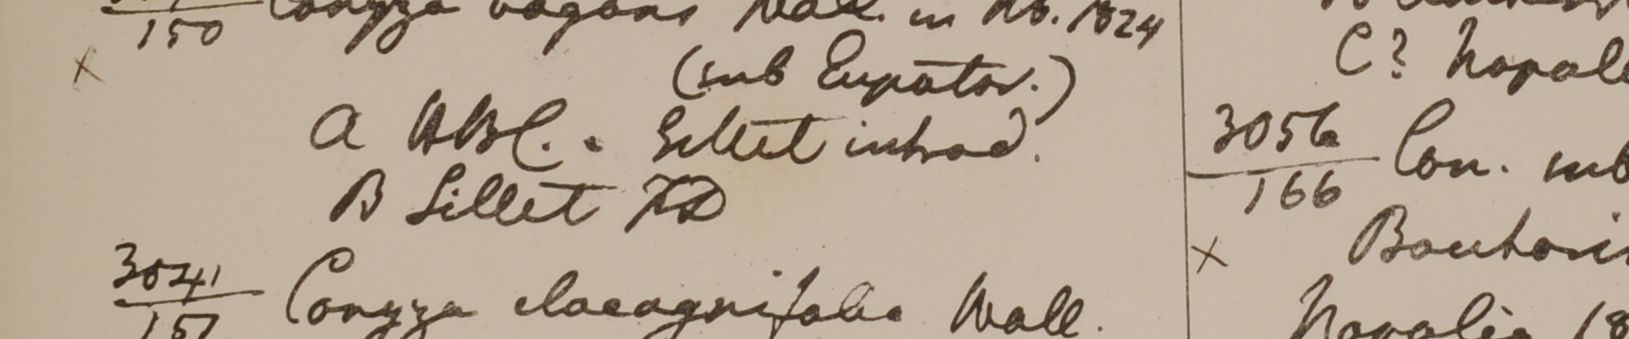 150 Conyza vagans Wall. in hb. 1824
x
(sub Eupator.)
a HBC. . Sillet introd.
B Sillet FD
3041
151 Conyza elaeagnifolia Wall.
C? Napal
3056
166 Con. sub
x
Napalia 18